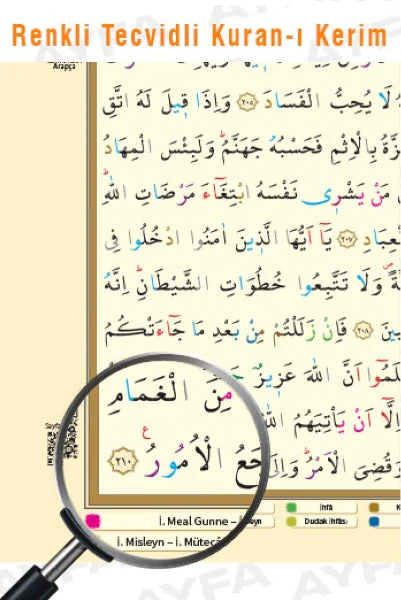 Renkli Tecvidli Kuran-ı Kerim
Arapça
لَا يُحِبُّ الْفَسَادَ ﴿٢٠٥﴾ وَاِذَا قٖيلَ لَهُ اتَّقِ
بِالْاِثْمِ فَحَسْبُهُ جَهَنَّمُ وَلَبِئْسَ الْمِهَادُ
مَنْ يَشْرٖى نَفْسَهُ ابْتِغَٓاءَ مَرْضَاتِ اللّٰهِ
﴿٢٠٧﴾ يَٓا اَيُّهَا الَّذٖينَ اٰمَنُوا ادْخُلُوا فِى
وَلَا تَتَّبِعُوا خُطُوَاتِ الشَّيْطَانِ اِنَّهُ
﴿٢٠٨﴾ فَاِنْ زَلَلْتُمْ مِنْ بَعْدِ مَا جَٓاءَتْكُمُ
اَنَّ اللّٰهَ عَزٖيزٌ
اِلَّٓا اَنْ يَأْتِيَهُمُ اللّٰهُ
مِنَ الْغَمَامِ
وَقُضِىَ الْاَمْرُ وَاِلَى
الْاُمُورُ ﴿٢١٠﴾
Sayfa
İ. Meal Gunne –
İhfâ
Dudak İhfâsı
İ. Misleyn – İ.
AYFA